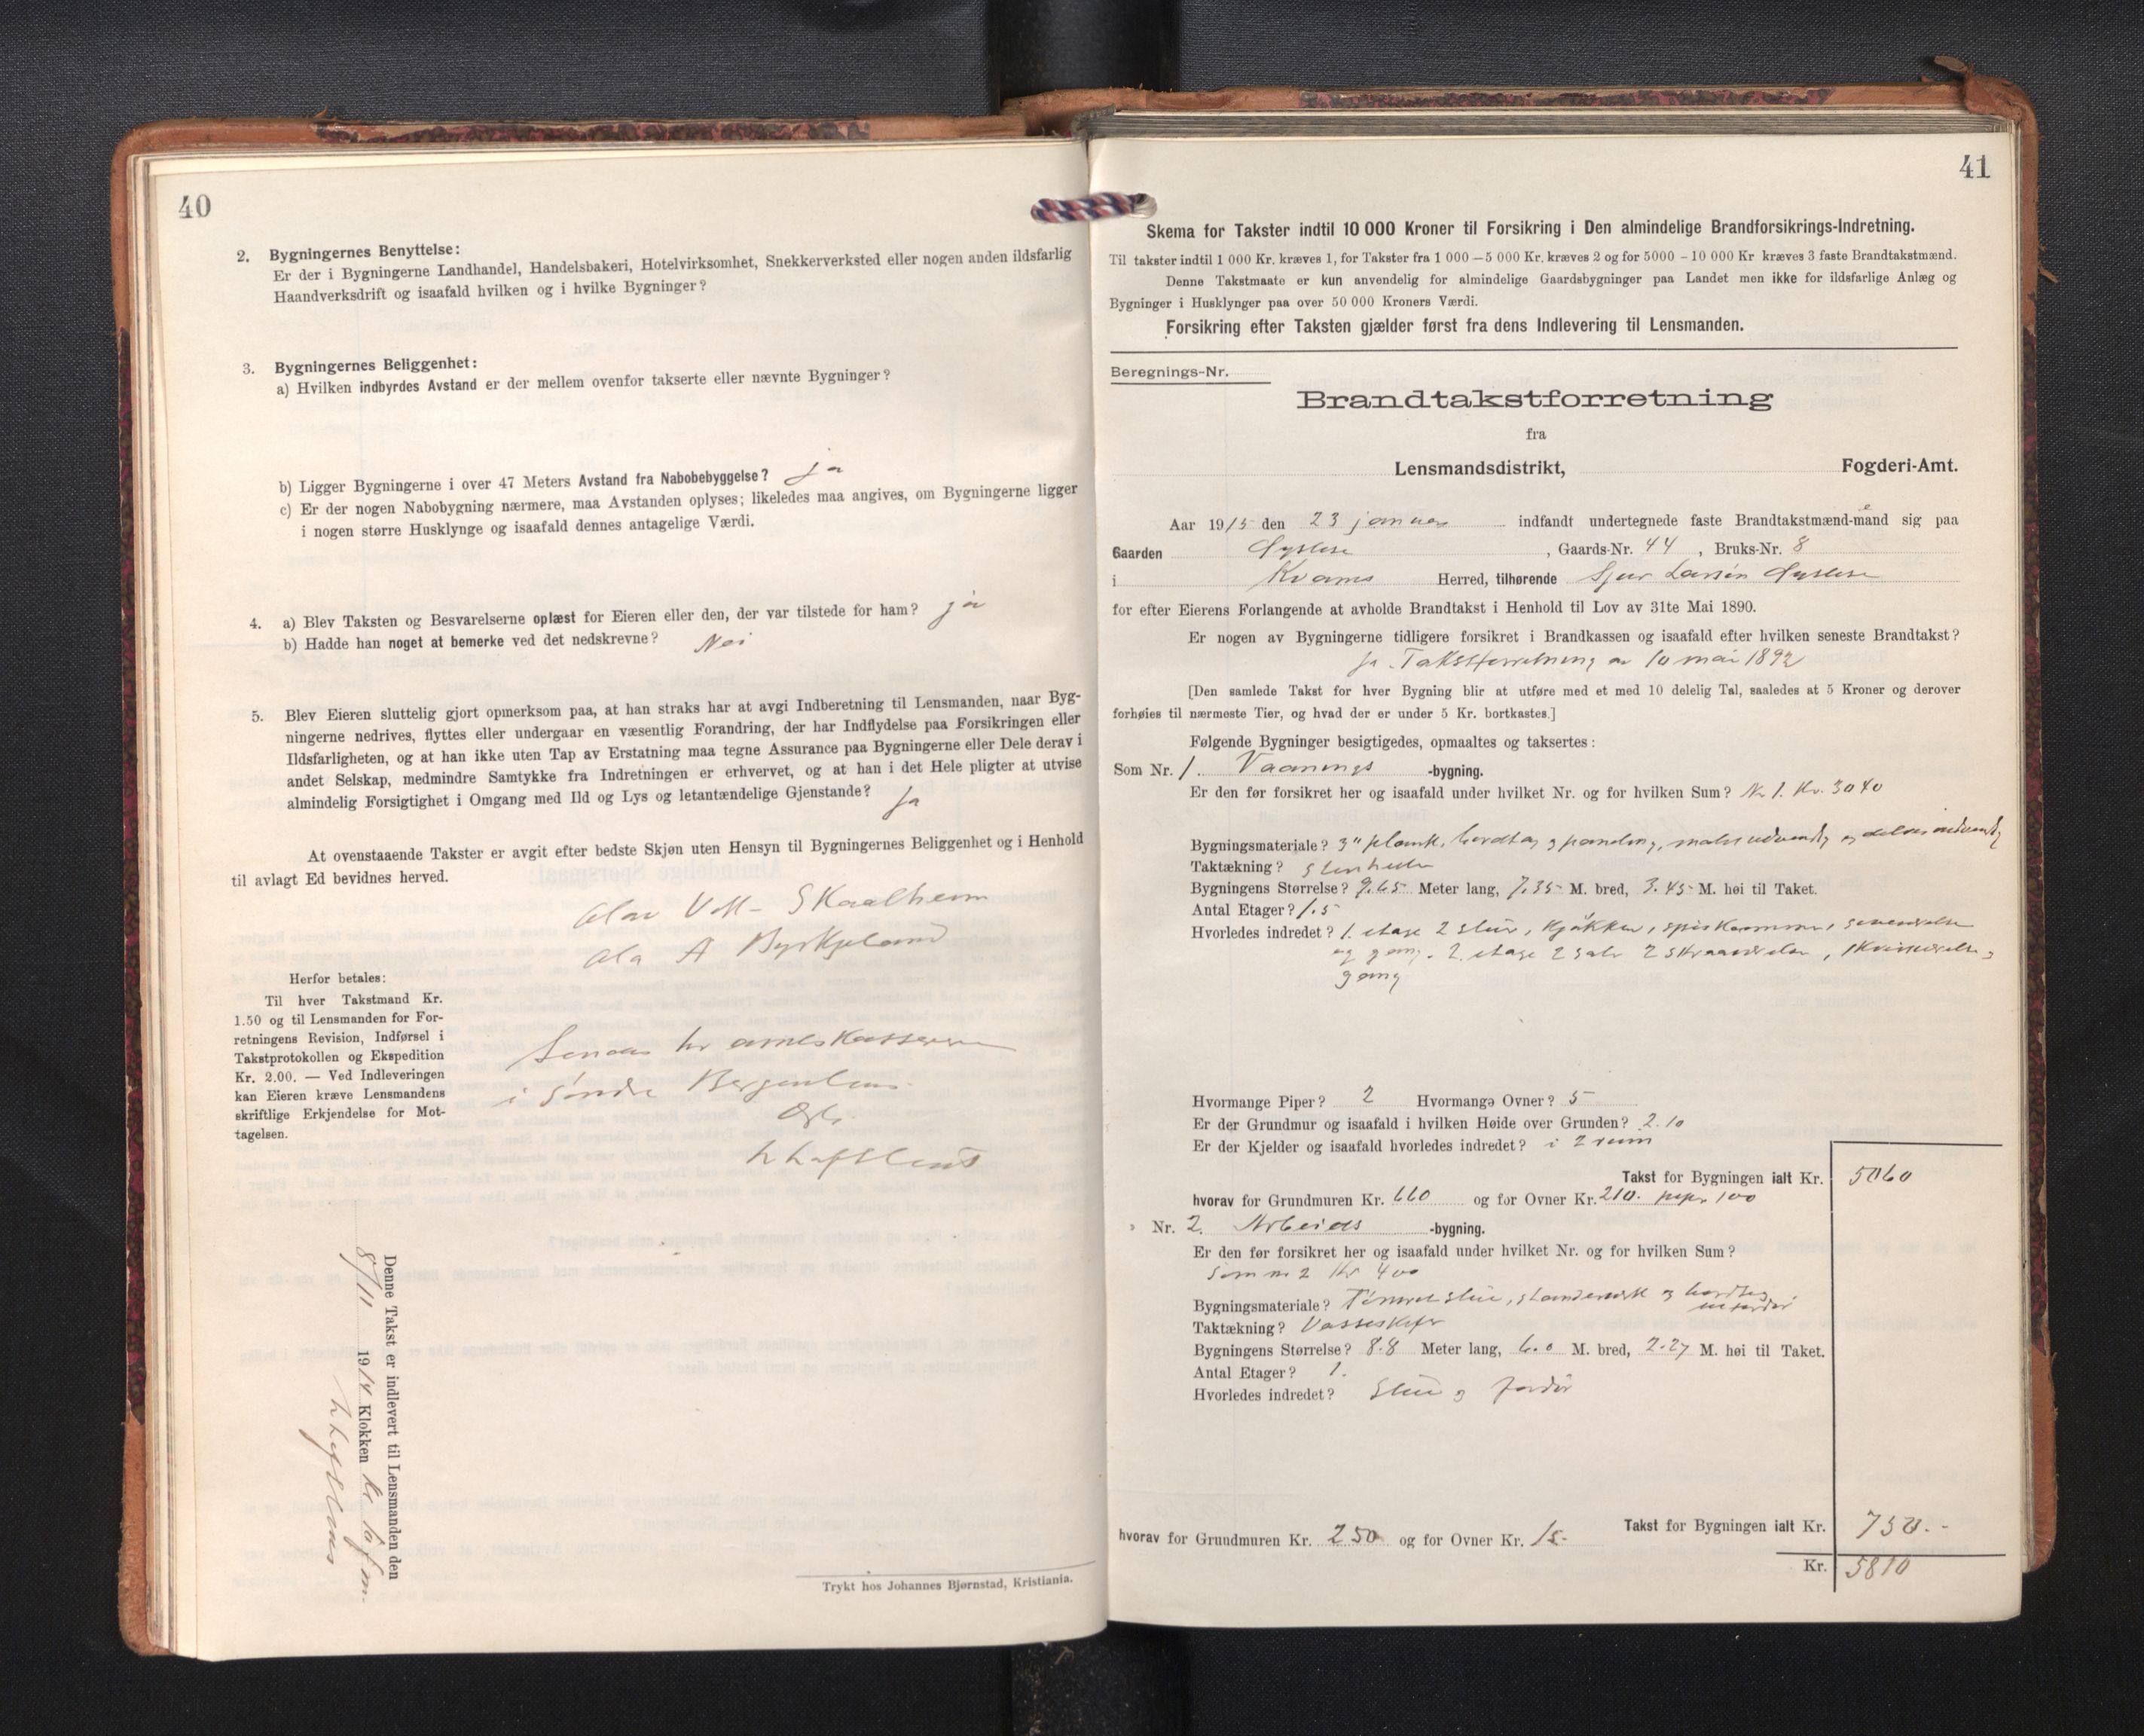 40
2. Bygningernes Benyttelse:
Er der i Bygningerne Landhandel, Handelsbakeri, Hotelvirksomhet, Snekkerverksted eller nogen anden ildsfarlig
Haandverksdrift og isaafald hvilken og i hvilke Bygninger?
3. Bygningernes Beliggenhet:
a) Hvilken indbyrdes Avstand er der mellem ovenfor takserte eller nævnte Bygninger?
b) Ligger Bygningerne i over 47 Meters Avstand fra Nabobebyggelse? ja
c) Er der nogen Nabobygning nærmere, maa Avstanden oplyses; likeledes maa angives, om Bygningerne ligger
i nogen større Husklynge og isaafald dennes antagelige Værdi.
4. a) Blev Taksten og Besvarelserne oplæst for Eieren eller den, der var tilstede for ham? ja
b) Hadde han noget at bemerke ved det nedskrevne? Nei
5. Blev Eieren sluttelig gjort opmerksom paa, at han straks har at avgi Indberetning til Lensmanden, naar Byg-
ningerne nedrives, flyttes eller undergaar en væsentlig Forandring, der har Indflydelse paa Forsikringen eller
Ildsfarligheten, og at han ikke uten Tap av Erstatning maa tegne Assurance paa Bygningerne eller Dele derav i
andet Selskap, medmindre Samtykke fra Indretningen er erhvervet, og at han i det Hele pligter at utvise
almindelig Forsigtighet i Omgang med Ild og Lys og letantændelige Gjenstande? ja
At ovenstaaende Takster er avgit efter bedste Skjøn uten Hensyn til Bygningernes Beliggenhet og i Henhold
til avlagt Ed bevidnes herved.
Olav Skaalheim
Ola A Byrkjeland
Herfor betales:
Til hver Takstmand Kr.
1.50 og til Lensmanden for For-
retningens Revision, Indførsel i
Takstprotokollen og Ekspedition
Kr. 2.00. — Ved Indleveringen
kan Eieren kræve Lensmandens
skriftlige Erkjendelse for Mot-
tagelsen.
Sendes hr amtskasserern
i Søndre Bergenhus
Denne Takst er indlevert til Lensmanden den
8/11 1914 Klokken
Trykt hos Johannes Bjørnstad, Kristiania.
41
Skema for Takster indtil 10 000 Kroner til Forsikring i Den almindelige Brandforsikrings-Indretning.
Til takster indtil 1 000 Kr. kræves 1, for Takster fra 1 000 — 5 000 Kr. kræves 2 og for 5000 - 10 000 Kr kræves 3 faste Brandtakstmænd.
Denne Takstmaate er kun anvendelig for almindelige Gaardsbygninger paa Landet men ikke for ildsfarlige Anlæg og
Bygninger i Husklynger paa over 50 000 Kroners Værdi.
Forsikring efter Taksten gjælder først fra dens Indlevering til Lensmanden.
Beregnings-Nr.
Brandtakstforretning
fra
Lensmandsdistrikt, Fogderi-Amt.
Aar 1915 den 23 januar indfandt undertegnede faste Brandtakstmænd-mand sig paa
Gaarden , Gaards-Nr. 44 , Bruks-Nr. 8
i Kvams Herred, tilhørende Sjur Larsen
for efter Eierens Forlangende at avholde Brandtakst i Henhold til Lov av 31te Mai 1890.
Er nogen av Bygningerne tidligere forsikret i Brandkassen og isaafald efter hvilken seneste Brandtakst?
ja. Takstforretning av 10 mai 1892
[Den samlede Takst for hver Bygning blir at utføre med et med 10 delelig Tal, saaledes at 5 Kroner og derover
forhøies til nærmeste Tier, og hvad der er under 5 Kr. bortkastes.]
Følgende Bygninger besigtigedes, opmaaltes og taksertes:
Som Nr. 1. Vaanings -bygning.
Er den før forsikret her og isaafald under hvilket Nr. og for hvilken Sum? No 1. Kr. 3040
Bygningsmateriale? 3" plank, bordtag og paneling, malet udvendig og delvis indvendig
Taktækning? Stenheller
Bygningens Størrelse? 9.65 Meter lang, 7.35 M. bred, 3.45 M. høi til Taket.
Antal Etager? 1.5
Hvorledes indreted? 1. etage 2 stuer, kjøkken, spiskammer, soveværelse
og gang. 2. etage 2 sale 2 skraaværelser, 1 kvistværelse og
gang
Hvormange Piper? 2 Hvormange Ovner? 5
Er der Grundmur og isaafald i hvilken Høide over Grunden? 2.10
Er der Kjelder og isaafald hvorledes indredet? i 2 rum
Takst for Bygningen ialt Kr. 5060
hvorav for Grundmuren Kr. 660 og for Ovner Kr. 210. piper 100
Nr. 2. Arbeids -bygning.
Er den før forsikret her og isaafald under hvilket Nr. og for hvilken Sum?
Som nr 2 Kr 400
Bygningsmateriale? Tømmerstue, standerverk og bordtag
Taktækning? Vasseskifer
Bygningens Størrelse? 8.8 Meter lang, 6.0 M. bred, 2.27 M. høi til Taket.
Antal Etager? 1.
Hvorledes indredet? Stue og
Takst for Bygningen ialt Kr. 750.-
hvorav for Grundmuren Kr. 250 og for Ovner Kr. 15-
Kr. 5810